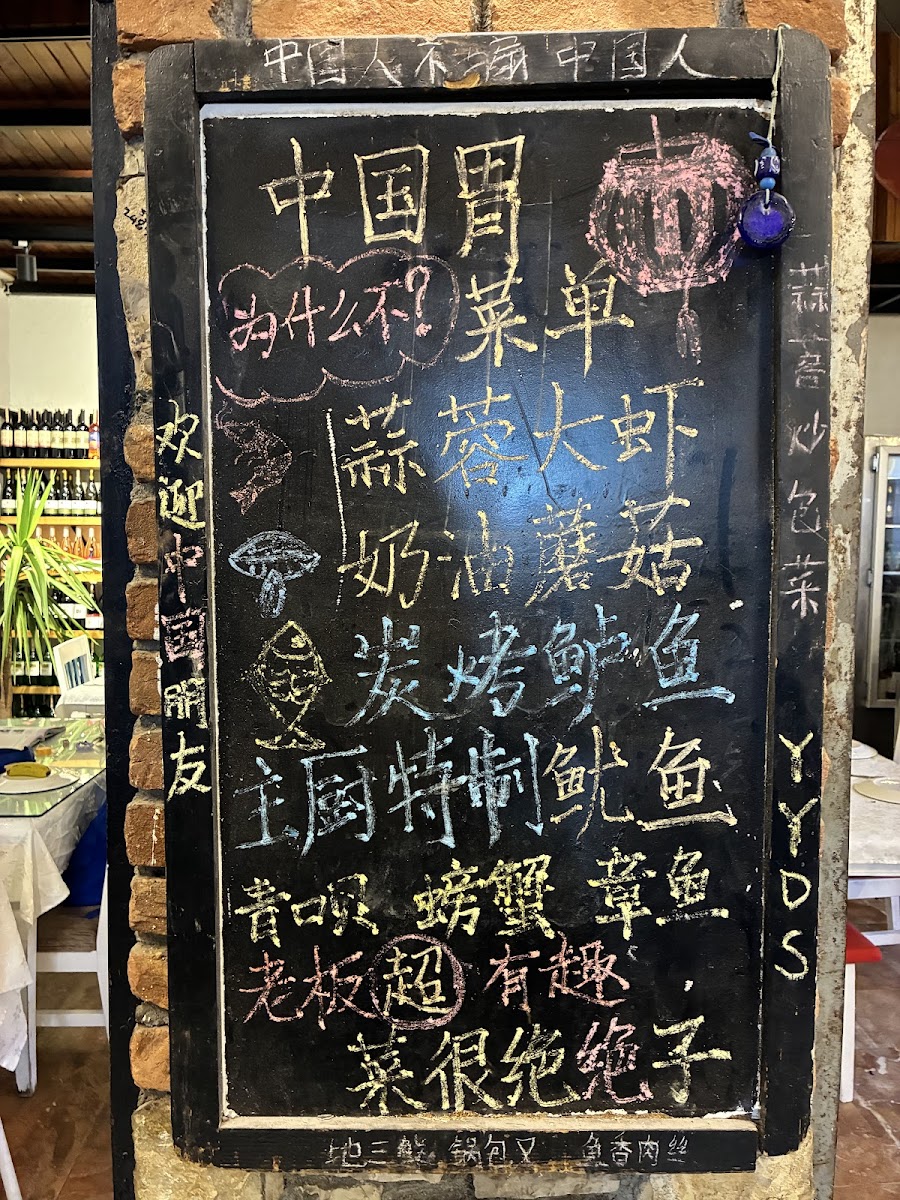 中国人不骗中国人
中国胃
为什么不?
菜单
蒜蓉大虾
奶油蘑菇
炭烤鲈鱼
主厨特制鱿鱼
青口贝 螃蟹 章鱼
老板超有趣
菜很绝绝子
欢迎中国朋友
蒜苔炒包菜
YYDS
地三鲜 锅包又 鱼香肉丝